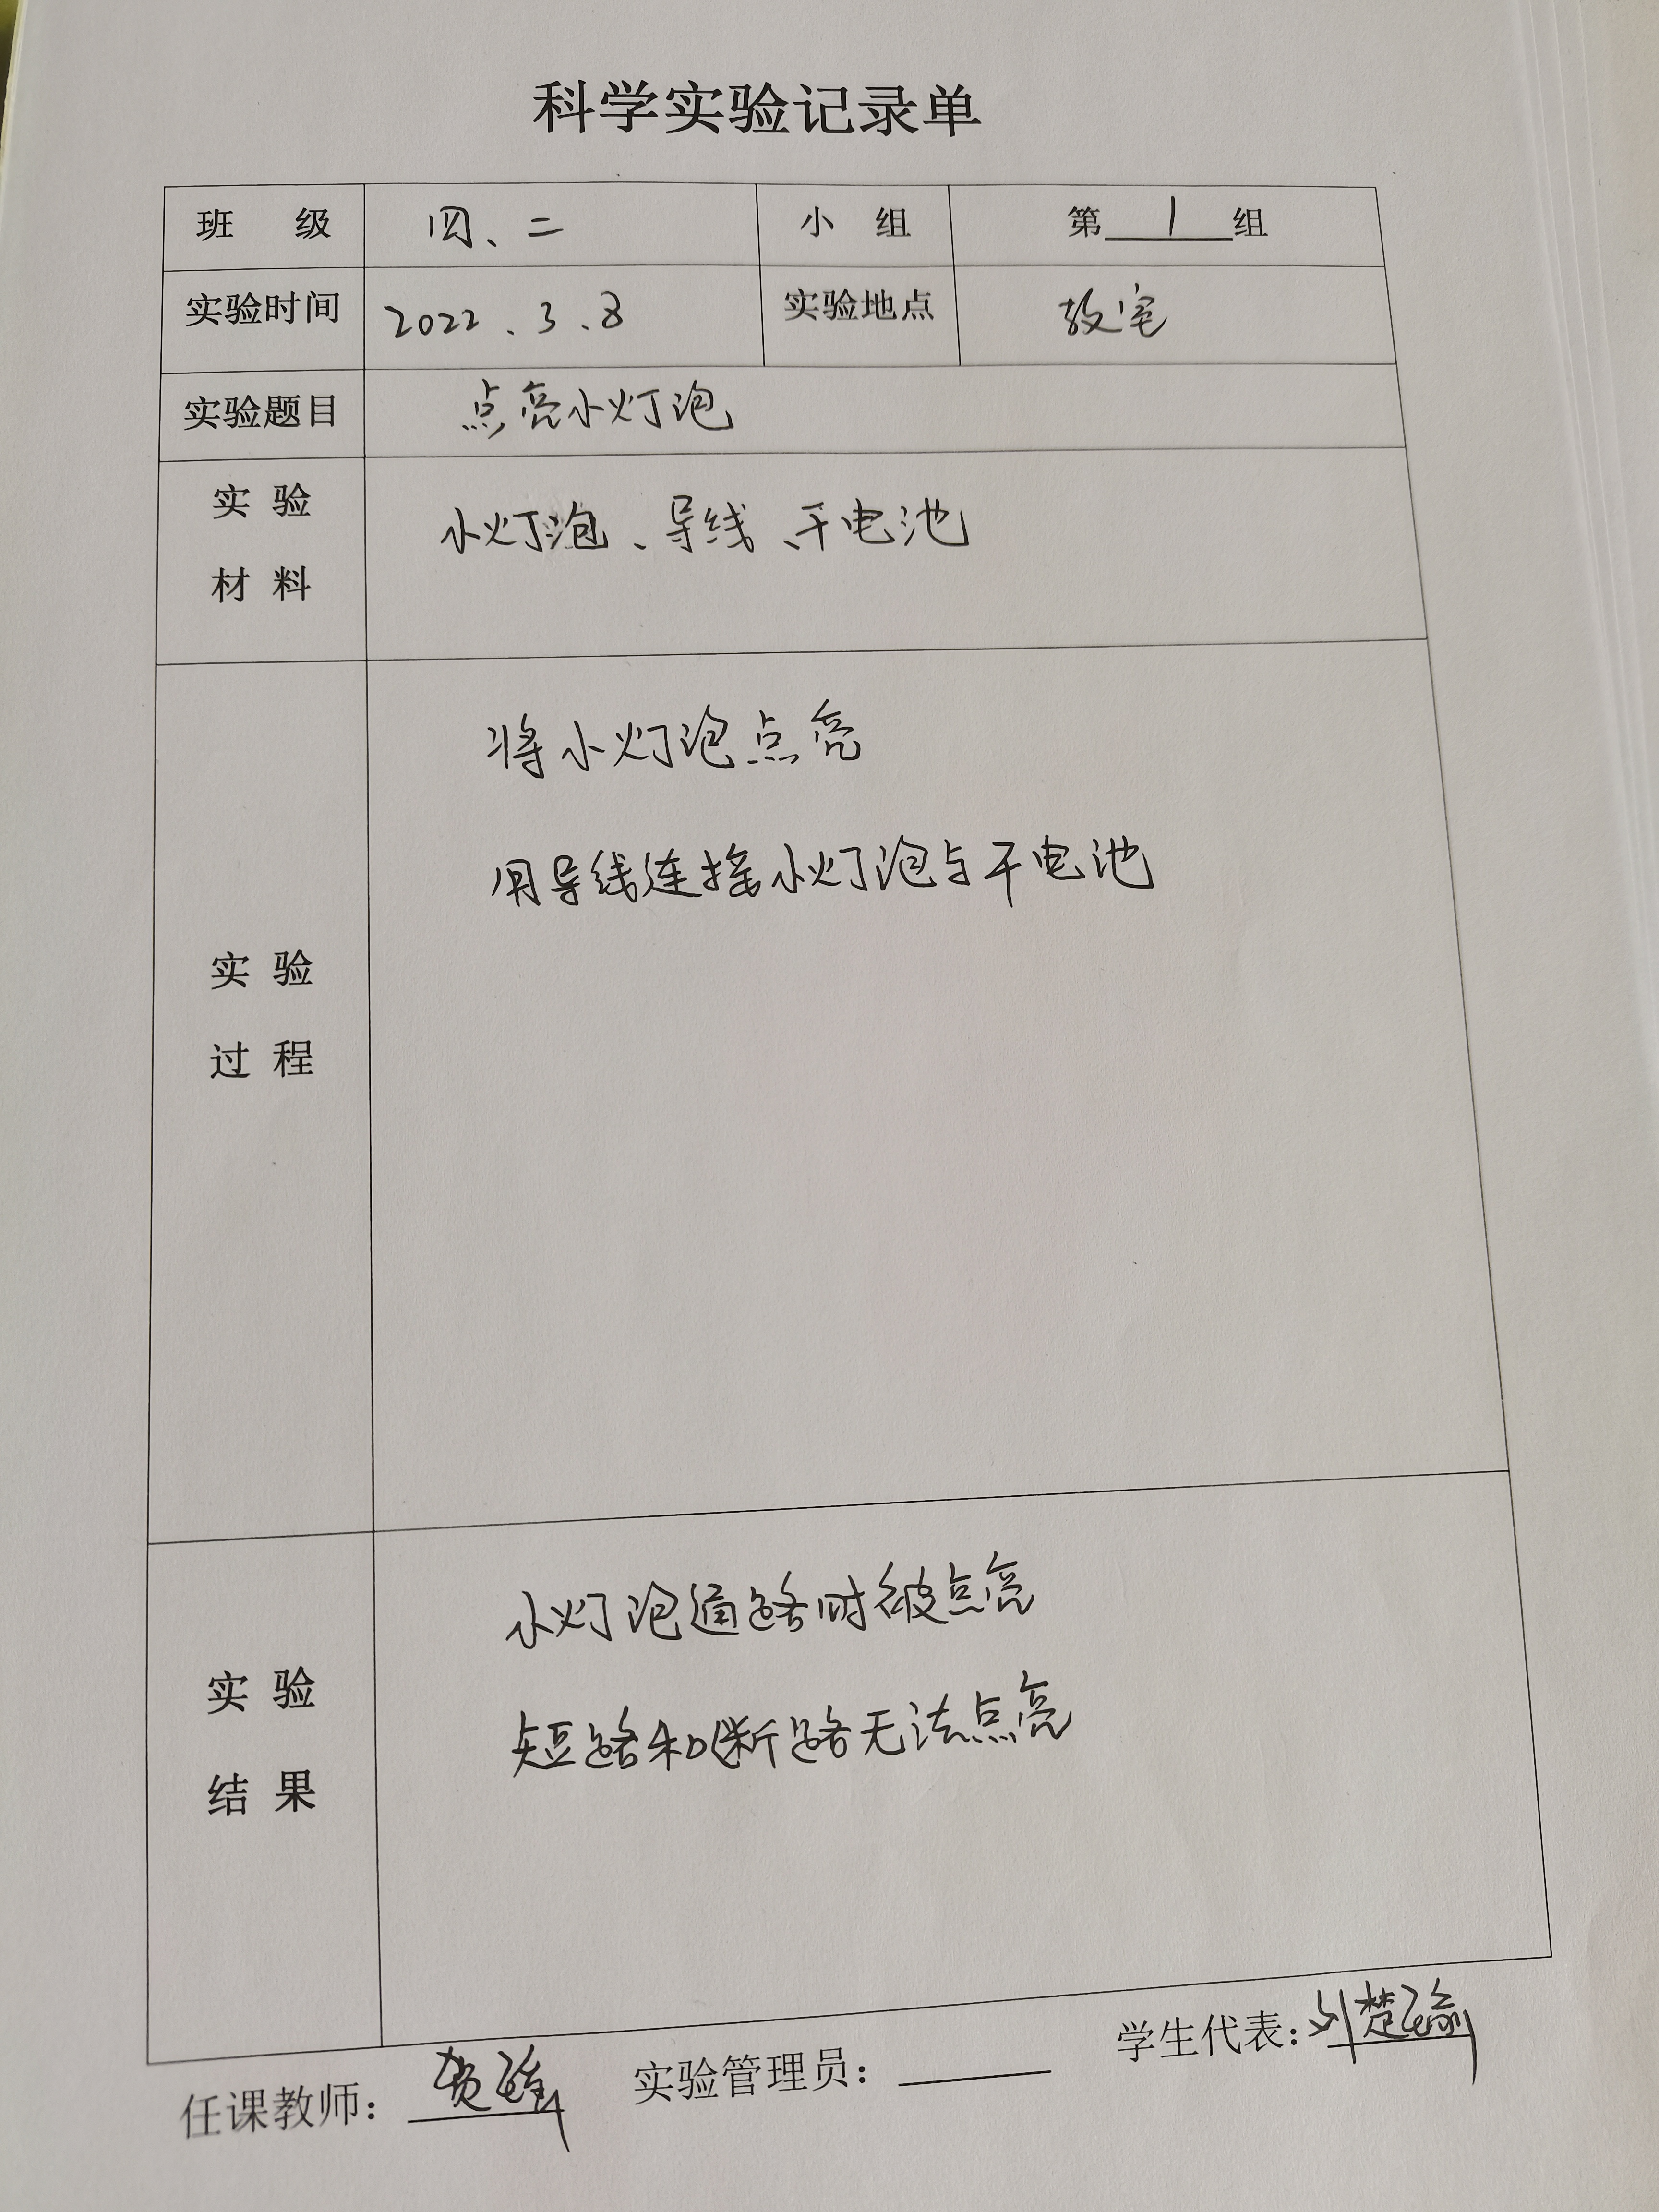 科学实验记录单
班 级 四、二 小 组 第 1 组
实验时间 2022.3.8 实验地点 教室
实验题目 点亮小灯泡
实 验
材 料
小灯泡、导线、干电池
将小灯泡点亮
用导线连接小灯泡与干电池
实 验
过 程
小灯泡通路时被点亮
短路和断路无法点亮
实 验
结 果
任课教师： 实验管理员： 学生代表：刘楚瑜